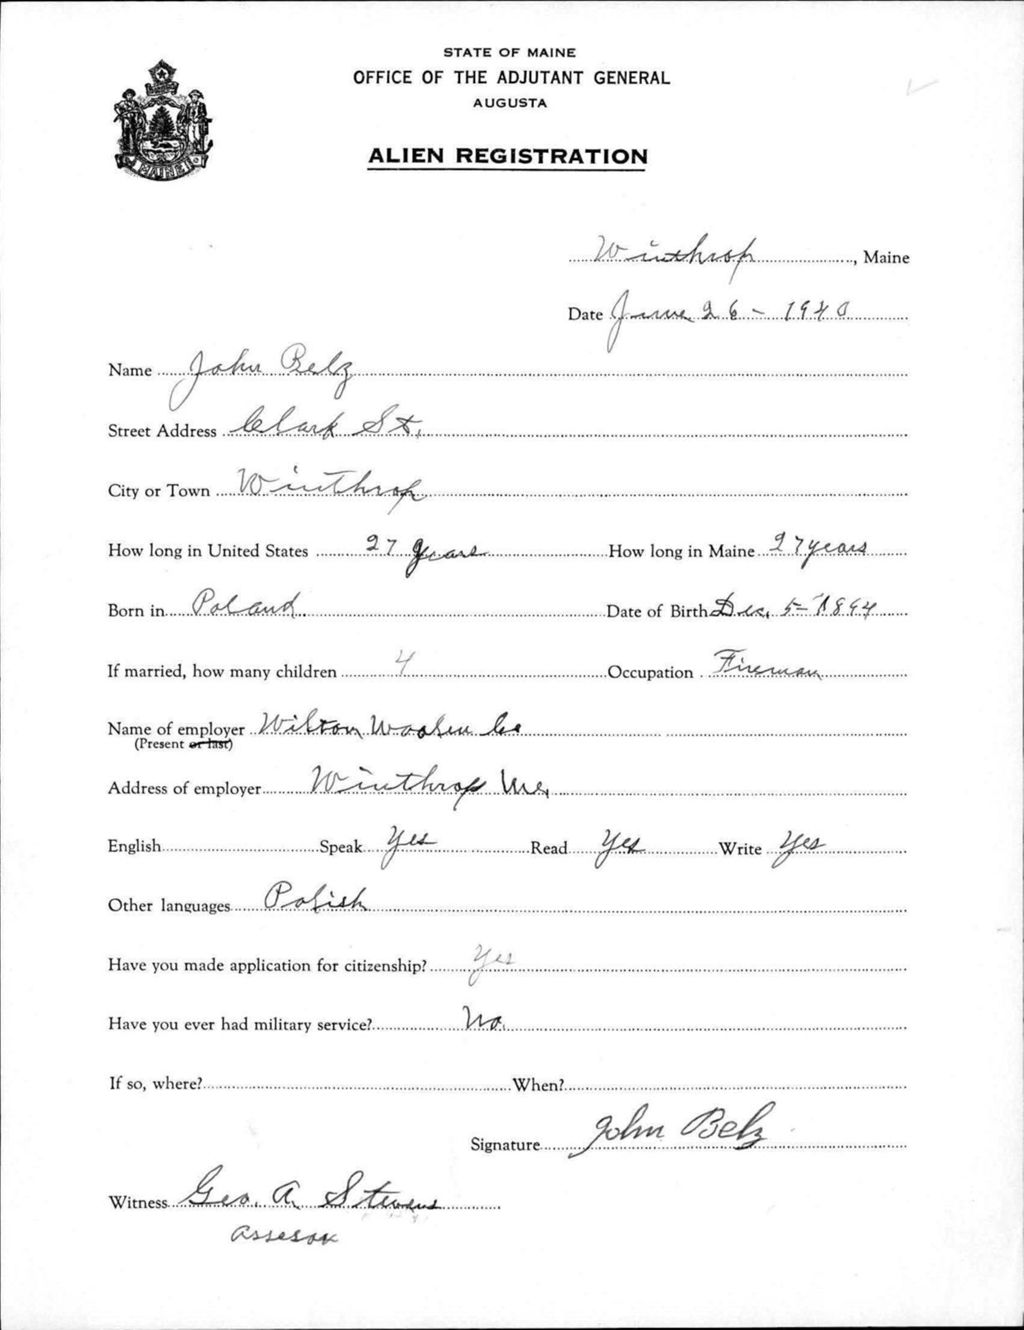 STATE OF MAINE
OFFICE OF THE ADJUTANT GENERAL
AUGUSTA
ALIEN REGISTRATION
MAINE
Winthrop, Maine
Date June 26 - 1940
Name John Belz
Street Address Clark St.
City or Town Winthrop
How long in United States 27 years How long in Maine 27 years
Born in Poland Date of Birth Dec. 5 - 1894
If married, how many children 4 Occupation Fireman
Name of employer Wilton Woolen Co
(Present or last)
Address of employer Winthrop Me,
English Speak Yes Read Yes Write Yes
Other languages Polish
Have you made application for citizenship? Yes
Have you ever had military service? No.
If so, where? When?
Signature John Belz
Witness Geo. A. Stevens
Assesor